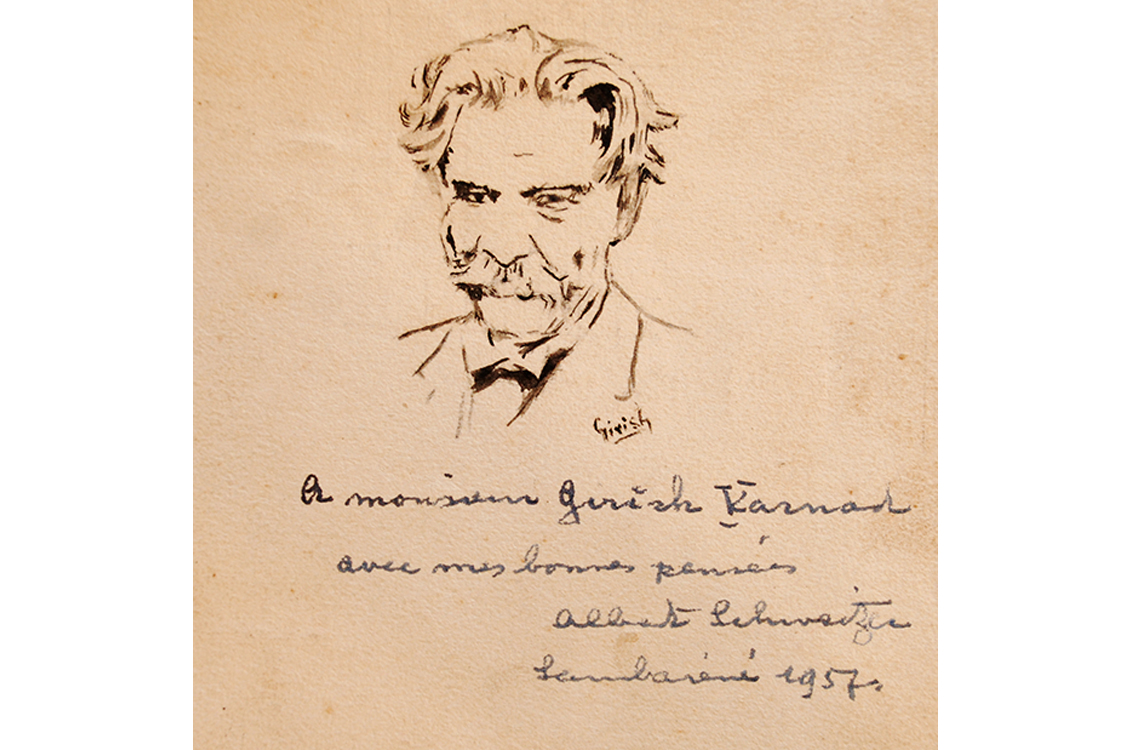 Girish
A monsieur Girish Karnad
avec mes bonnes pensées
Albert Schweitzer
Lambaréné 1957.